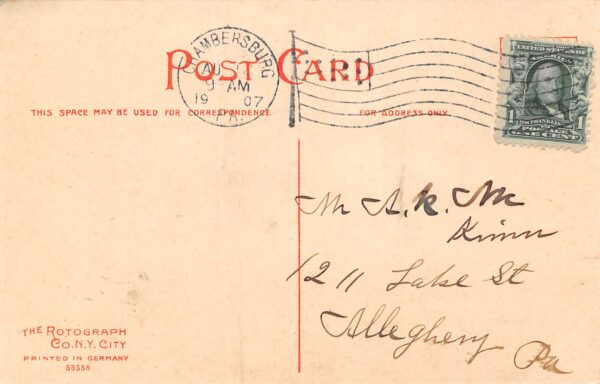 POST CARD
CHAMBERSBURG
AU
9 AM
19 07
PA.
THIS SPACE MAY BE USED FOR CORRESPONDENCE
FOR ADDRESS ONLY.
UNITED STATES OF
AMERICA
FRANKLIN
1 POSTAGE 1
ONE CENT
Mr A. K. Mc
Kinn
1211 Lake St
Allegheny
Pa
THE ROTOGRAPH
CO. N.Y. CITY
PRINTED IN GERMANY
53558